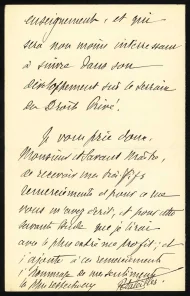 enseignement, et qui
sera non moins intéressant
à suivre dans son
développement sur le terrain
du Droit Privé.
Je vous prie donc,
Monsieur et Savant Maître,
de recevoir mes très
remerciements et pour ce que
vous m'avez écrit, et pour cette
savante étude que je lirai
avec le plus entier profit; et
j'ajoute à ces remerciements
l'hommage de mes sentiments
les plus respectueux